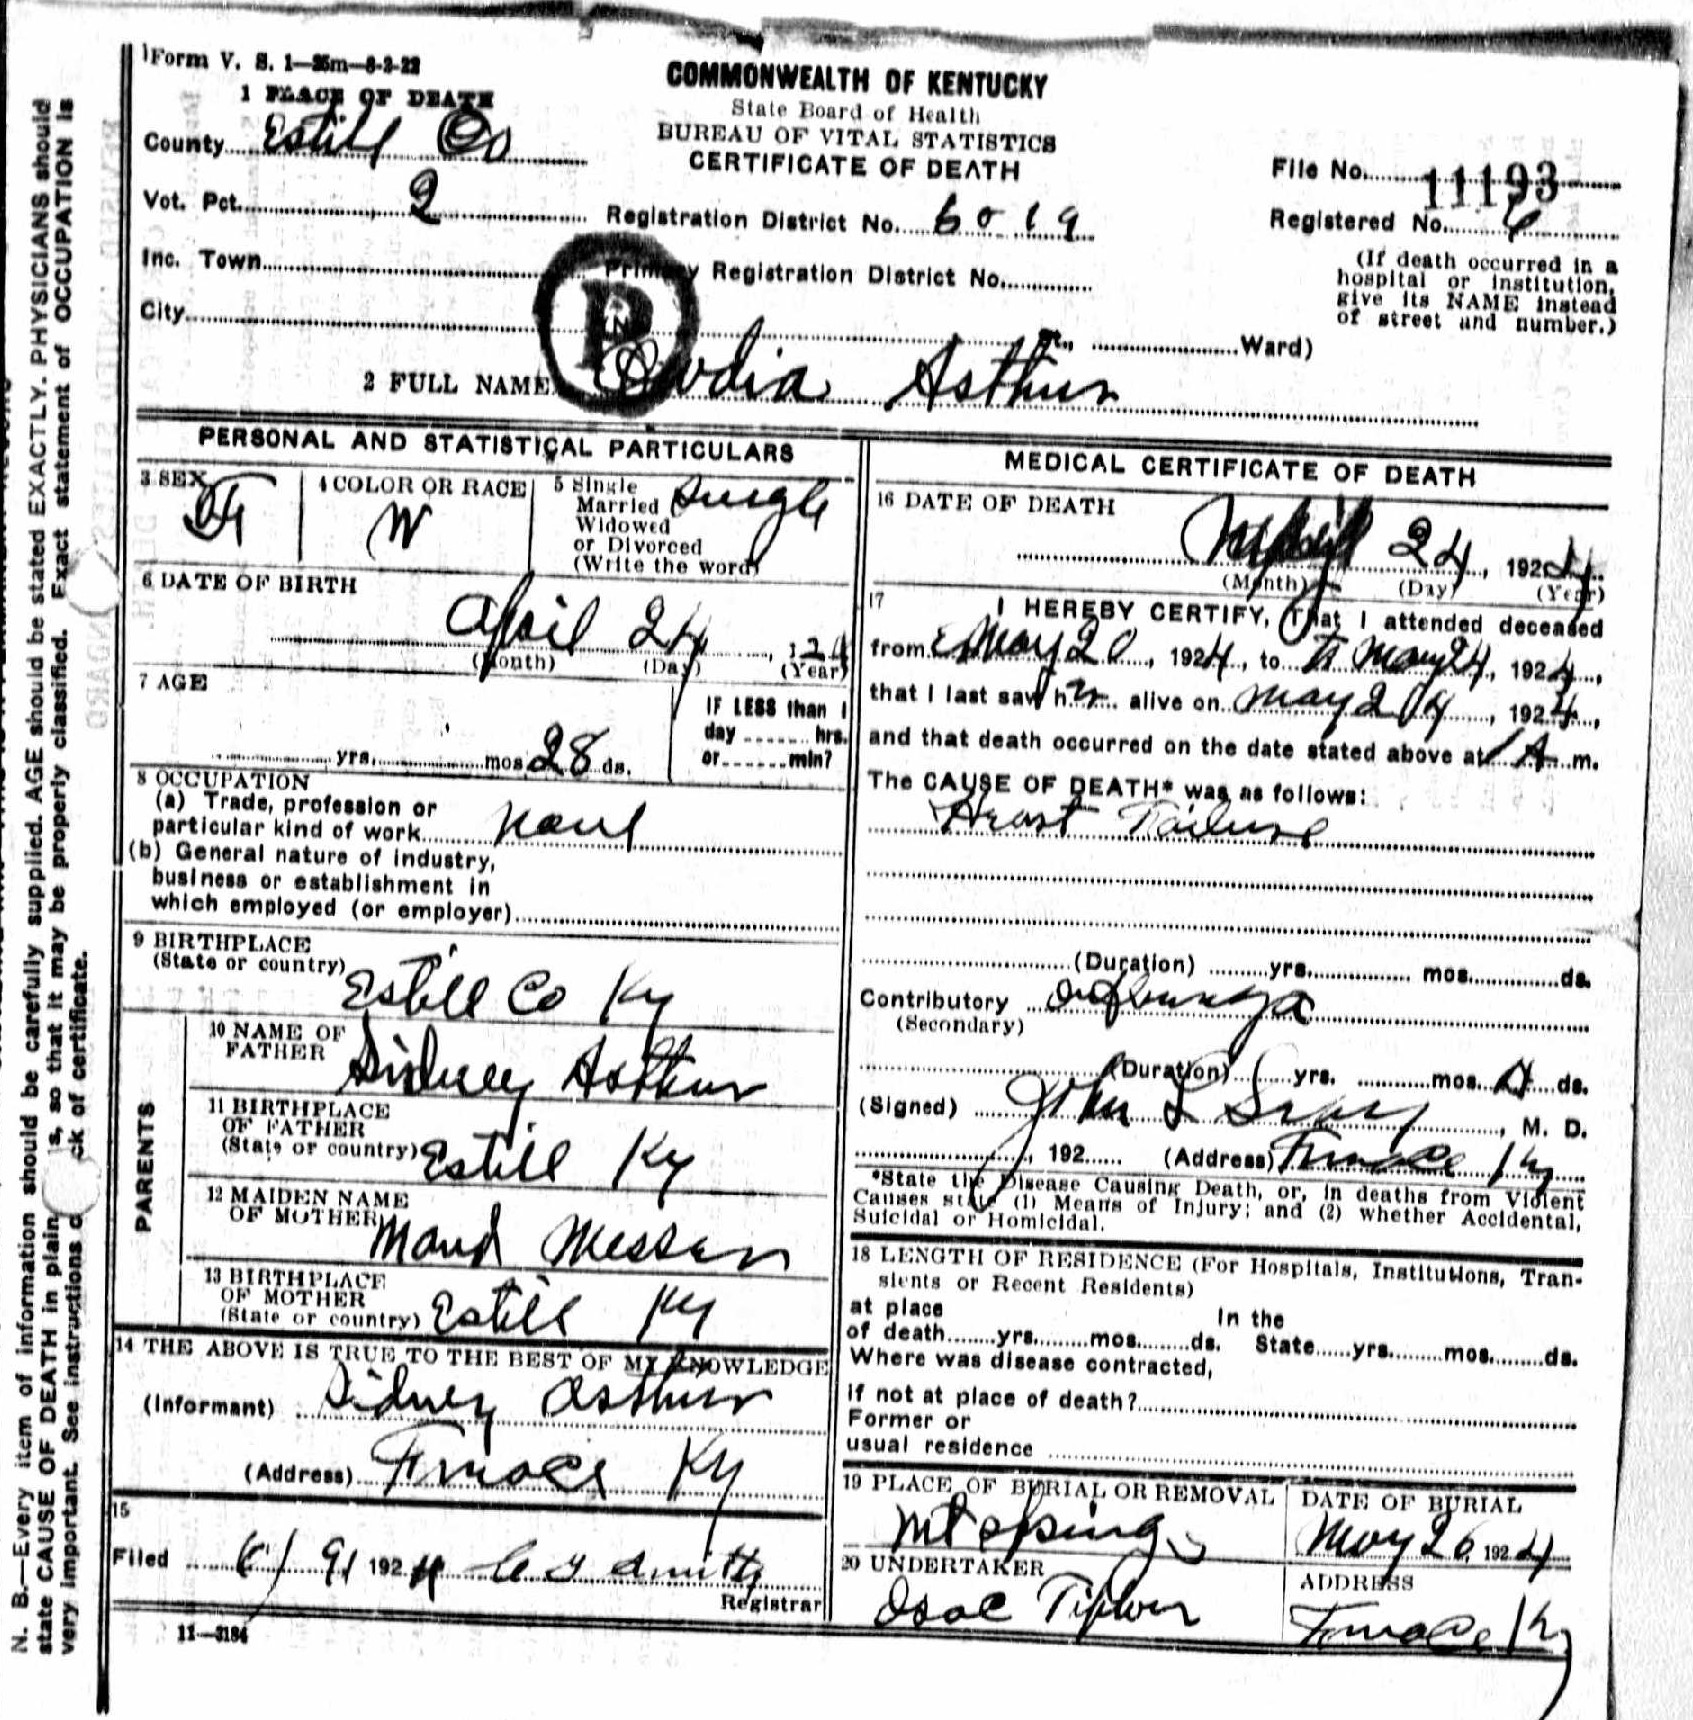 Form V. S. 1—25m—8-3-22
COMMONWEALTH OF KENTUCKY
State Board of Health
BUREAU OF VITAL STATISTICS
CERTIFICATE OF DEATH
1 PLACE OF DEATH
County Estill Co
Vot. Pct. 2
Inc. Town
City
Registration District No. 6019
Primary Registration District No.
St., Ward)
File No. 11193
Registered No.
(If death occurred in a
hospital or institution,
give its NAME instead
of street and number.)
2 FULL NAME Arthur
PERSONAL AND STATISTICAL PARTICULARS
3 SEX F
4 COLOR OR RACE W
5 Single
Married
Widowed
or Divorced
(Write the word)
Single
6 DATE OF BIRTH
April 24, 1924
(Month) (Day) (Year)
7 AGE
yrs. mos. 28 ds.
IF LESS than 1
day hrs.
or min?
8 OCCUPATION
(a) Trade, profession or
particular kind of work
(b) General nature of industry,
business or establishment in
which employed (or employer)
9 BIRTHPLACE
(State or country)
Estill Co Ky
PARENTS
10 NAME OF
FATHER
Sidney Arthur
11 BIRTHPLACE
OF FATHER
(State or country) Estill Ky
12 MAIDEN NAME
OF MOTHER
Maud Messer
13 BIRTHPLACE
OF MOTHER
(State or country) Estill Ky
14 THE ABOVE IS TRUE TO THE BEST OF MY KNOWLEDGE
(Informant) Sidney Arthur
(Address) Furnace Ky
15
Filed 6/9/ 1924
Registrar
11—3184
MEDICAL CERTIFICATE OF DEATH
16 DATE OF DEATH
24, 1924
(Month) (Day) (Year)
17
I HEREBY CERTIFY, That I attended deceased
from May 20, 1924, to May 24, 1924,
that I last saw h alive on May 24, 1924,
and that death occurred on the date stated above at 1 A m.
The CAUSE OF DEATH* was as follows:
Heart Failure
(Duration) yrs. mos. ds.
Contributory
(Secondary)
(Duration) yrs. mos. ds.
(Signed) John L , M. D.
, 192 (Address) Furnace Ky
*State the Disease Causing Death, or, in deaths from Violent
Causes state (1) Means of Injury; and (2) whether Accidental,
Suicidal or Homicidal.
18 LENGTH OF RESIDENCE (For Hospitals, Institutions, Tran-
sients or Recent Residents)
at place In the
of death yrs. mos. ds. State yrs. mos. ds.
Where was disease contracted,
if not at place of death?
Former or
usual residence
19 PLACE OF BURIAL OR REMOVAL
Mt Spring
DATE OF BURIAL
May 26, 1924
20 UNDERTAKER
Isac
ADDRESS
Furnace Ky
N. B.—Every item of information should be carefully supplied. AGE should be stated EXACTLY. PHYSICIANS should
state CAUSE OF DEATH in plain s, so that it may be properly classified. Exact statement of OCCUPATION is
very important. See instructions ck of certificate.